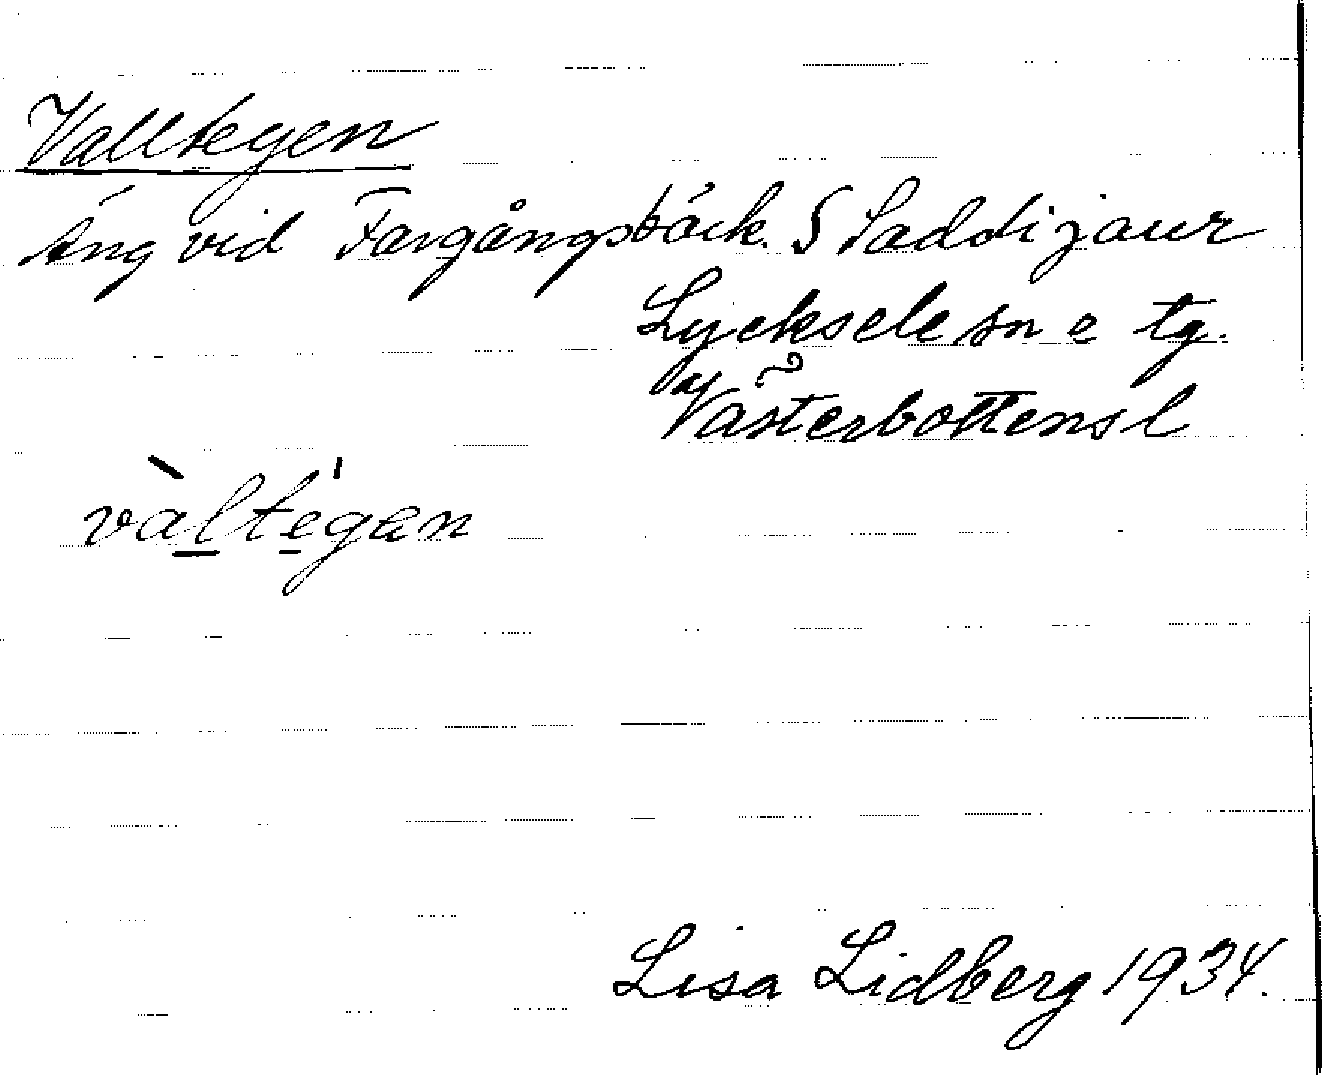 Valltegen
Äng vid Fargångsbäck. S Saddijaur
Lycksele sn o tg.
Västerbottens l
vàltégen
Lisa Lidberg 1934.